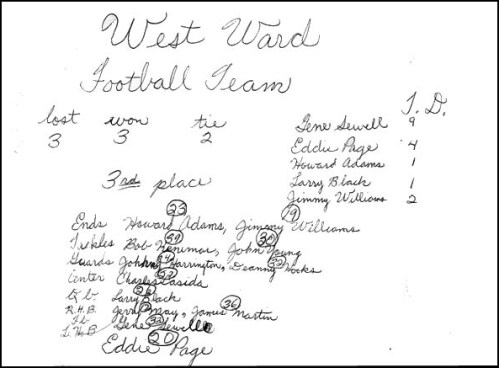 West Ward
Football Team
lost won tie
3 3 2
3rd place
T. D.
Gene Sewell 9
Eddie Page 4
Howard Adams 1
Larry Black 1
Jimmy Williams 2
33 19
Ends Howard Adams, Jimmy Williams
Tickles Bob John Young
Guards Johnny Harrington, Deanny Hooks
Center Charles Casida
Q b. Larry Black
36
R.H.B Jerry May, James Martin
Fb Gene Sewell
L.H.B
20
Eddie Page